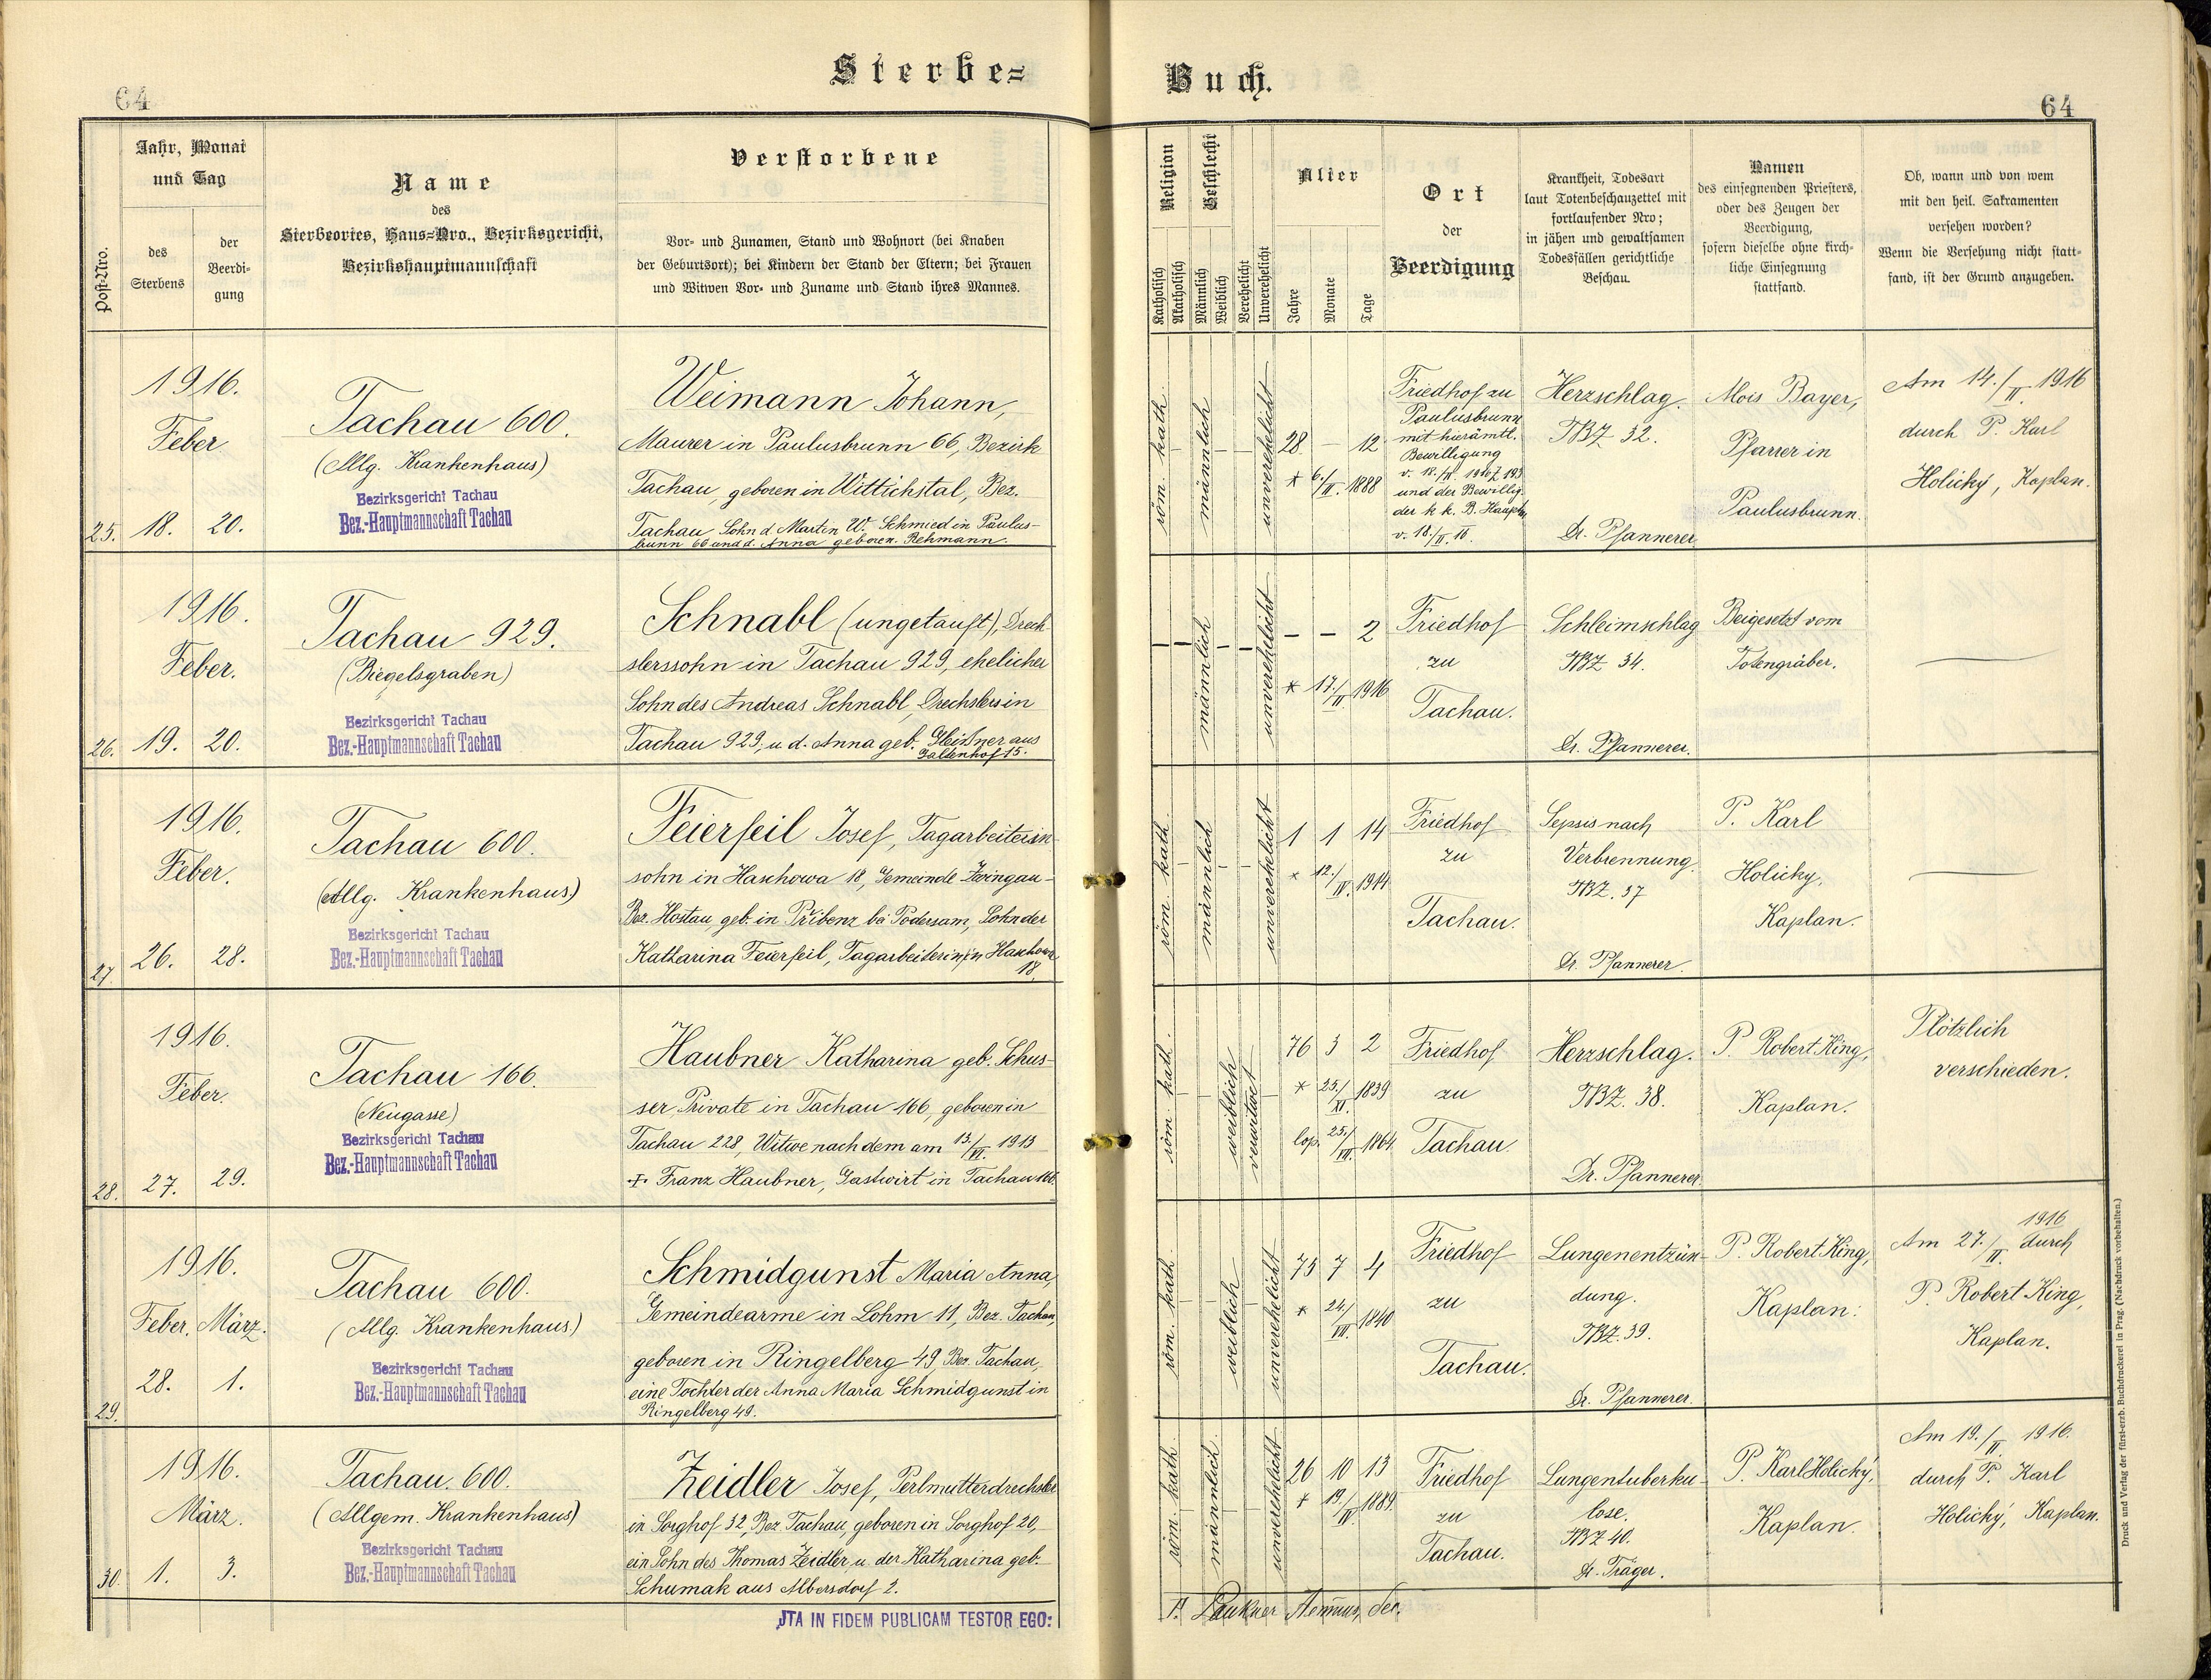 Sterbe= Buch.
64
64
Post-Nro.
Jahr, Monat
und Tag
des
Sterbens
der
Beerdi-
gung
Name
des
Sterbeortes, Haus=Nro., Bezirksgericht,
Bezirkshauptmannschaft
Verstorbene
Vor- und Zunamen, Stand und Wohnort (bei Knaben
der Geburtsort); bei Kindern der Stand der Eltern; bei Frauen
und Witwen Vor- und Zuname und Stand ihres Mannes.
Religion
Katholisch
Akatholisch
Geschlecht
Männlich
Weiblich
Verehelicht
Unverehelicht
Alter
Jahre
Monate
Tage
Ort
der
Beerdigung
Krankheit, Todesart
laut Totenbeschauzettel mit
fortlaufender Nro;
in jähen und gewaltsamen
Todesfällen gerichtliche
Beschau.
Namen
des einsegnenden Priesters,
oder des Zeugen der
Beerdigung,
sofern dieselbe ohne kirch-
liche Einsegnung
stattfand.
Ob, wann und von wem
mit den heil. Sakramenten
versehen worden?
Wenn die Versehung nicht statt-
fand, ist der Grund anzugeben.
1916.
Feber
25. 18. 20.
Tachau 600.
(Allg. Krankenhaus)
Bezirksgericht Tachau
Bez.-Hauptmannschaft Tachau
Weimann Johann,
Maurer in Paulusbrunn 66, Bezirk
Tachau, geboren in Wittichstal, Bez.
Tachau Sohn d. Martin W. Schmied in Paulus-
brunn 66 und d. Anna geboren. Rehmann.
röm. kath.
männlich
unverehelicht
28. — 12
* 6./II. 1888
Friedhof zu
Paulusbrunn
mit hierämtl.
Bewilligung
v. 18./II. 1916 Z 193
und der Bewillig.
der k k. B. Hauptm.
v. 18./II. 16.
Herzschlag.
TBZ 32.
Dr. Pfannerer
Alois Bayer,
Pfarrer in
Paulusbrunn.
Am 14./II. 1916
durch P. Karl
Holicky, Kaplan.
1916.
Feber.
26. 19. 20.
Tachau 929.
(Biegelsgraben)
Bezirksgericht Tachau
Bez.-Hauptmannschaft Tachau
Schnabl (ungetauft), Drech
slerssohn in Tachau 929, ehelicher
Sohn des Andreas Schnabl, Drechslers in
Tachau 929, u. d. Anna geb. Gleißner aus
Galtenhof 15.
männlich
unverehelicht
— — 2
* 17./II. 1916
Friedhof
zu
Tachau.
Schleimschlag
TBZ 34.
Dr. Pfannerer.
Beigesetzt vom
Totengräber.
1916.
Feber.
27. 26. 28.
Tachau 600.
(Allg. Krankenhaus)
Bezirksgericht Tachau
Bez.-Hauptmannschaft Tachau
Feierfeil Josef, Tagarbeiterin
sohn in Haschowa 18, Gemeinde Zwingau
Bez. Hostau, geb. in Přibenz bei Podersam, Sohn der
Katharina Feierfeil, Tagarbeiterin in Haschowa
18.
röm. kath.
männlich
unverehelicht
1 1 14
* 12./IV. 1914
Friedhof
zu
Tachau.
Sepsis nach
Verbrennung.
TBZ. 37
Dr. Pfannerer.
P. Karl
Holicky,
Kaplan.
1916.
Feber.
28. 27. 29.
Tachau 166.
(Neugasse)
Bezirksgericht Tachau
Bez.-Hauptmannschaft Tachau
Haubner Katharina geb. Schus-
ser Private in Tachau 166, geboren in
Tachau 228, Witwe nach dem am 13./VI. 1913
+ Franz Haubner, Gastwirt in Tachau 166.
röm. kath.
weiblich
verwitwet
76 3 2
* 25./XI. 1839
cop. 25./VII. 1864
Friedhof
zu
Tachau.
Herzschlag.
TBZ. 38.
Dr. Pfannerer.
P. Robert King,
Kaplan.
Plötzlich
verschieden.
1916.
Feber. März.
29. 28. 1.
Tachau 600.
(Allg. Krankenhaus)
Bezirksgericht Tachau
Bez.-Hauptmannschaft Tachau
Schmidgunst Maria Anna,
Gemeindearme in Lohm 11, Bez. Tachau,
geboren in Ringelberg 49 Bez. Tachau,
eine Tochter der Anna Maria Schmidgunst in
Ringelberg 49.
röm. kath.
weiblich
unverehelicht
75 7 4
* 24./VII. 1840
Friedhof
zu
Tachau.
Lungenentzün-
dung.
TBZ. 39.
Dr. Pfannerer.
P. Robert King,
Kaplan.
Am 27./II. 1916 durch
P. Robert King,
Kaplan.
1916.
März.
30. 1. 3.
Tachau. 600.
(Allgem. Krankenhaus)
Bezirksgericht Tachau
Bez.-Hauptmannschaft Tachau
Zeidler Josef, Perlmutterdrechsler
in Sorghof 32, Bez. Tachau, geboren in Sorghof 20,
ein Sohn des Thomas Zeidler u. der Katharina geb.
Schumak aus Albersdorf 2.
röm. kath.
männlich
unverehelicht
26 10 13
* 19./IV. 1889
Friedhof
zu
Tachau.
Lungentuberku-
lose.
TBZ 40.
Dr. Träger.
P. Karl Holicky,
Kaplan.
Am 19./II 1916.
durch P. Karl
Holický, Kaplan.
JTA IN FIDEM PUBLICAM TESTOR EGO:
Druck und Verlag der fürst-erzb. Buchdruckerei in Prag. (Nachdruck vorbehalten.)